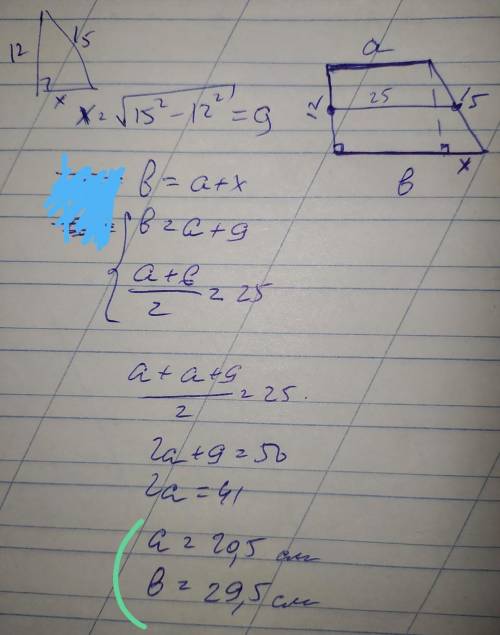 12 15
x
x = √15² - 12² = 9
a
12 25 15
x
в
в = a + x
в = a + 9
a + в / 2 = 25
a + a + 9 / 2 = 25.
2a + 9 = 50
2a = 41
a = 20,5 см
в = 29,5 см